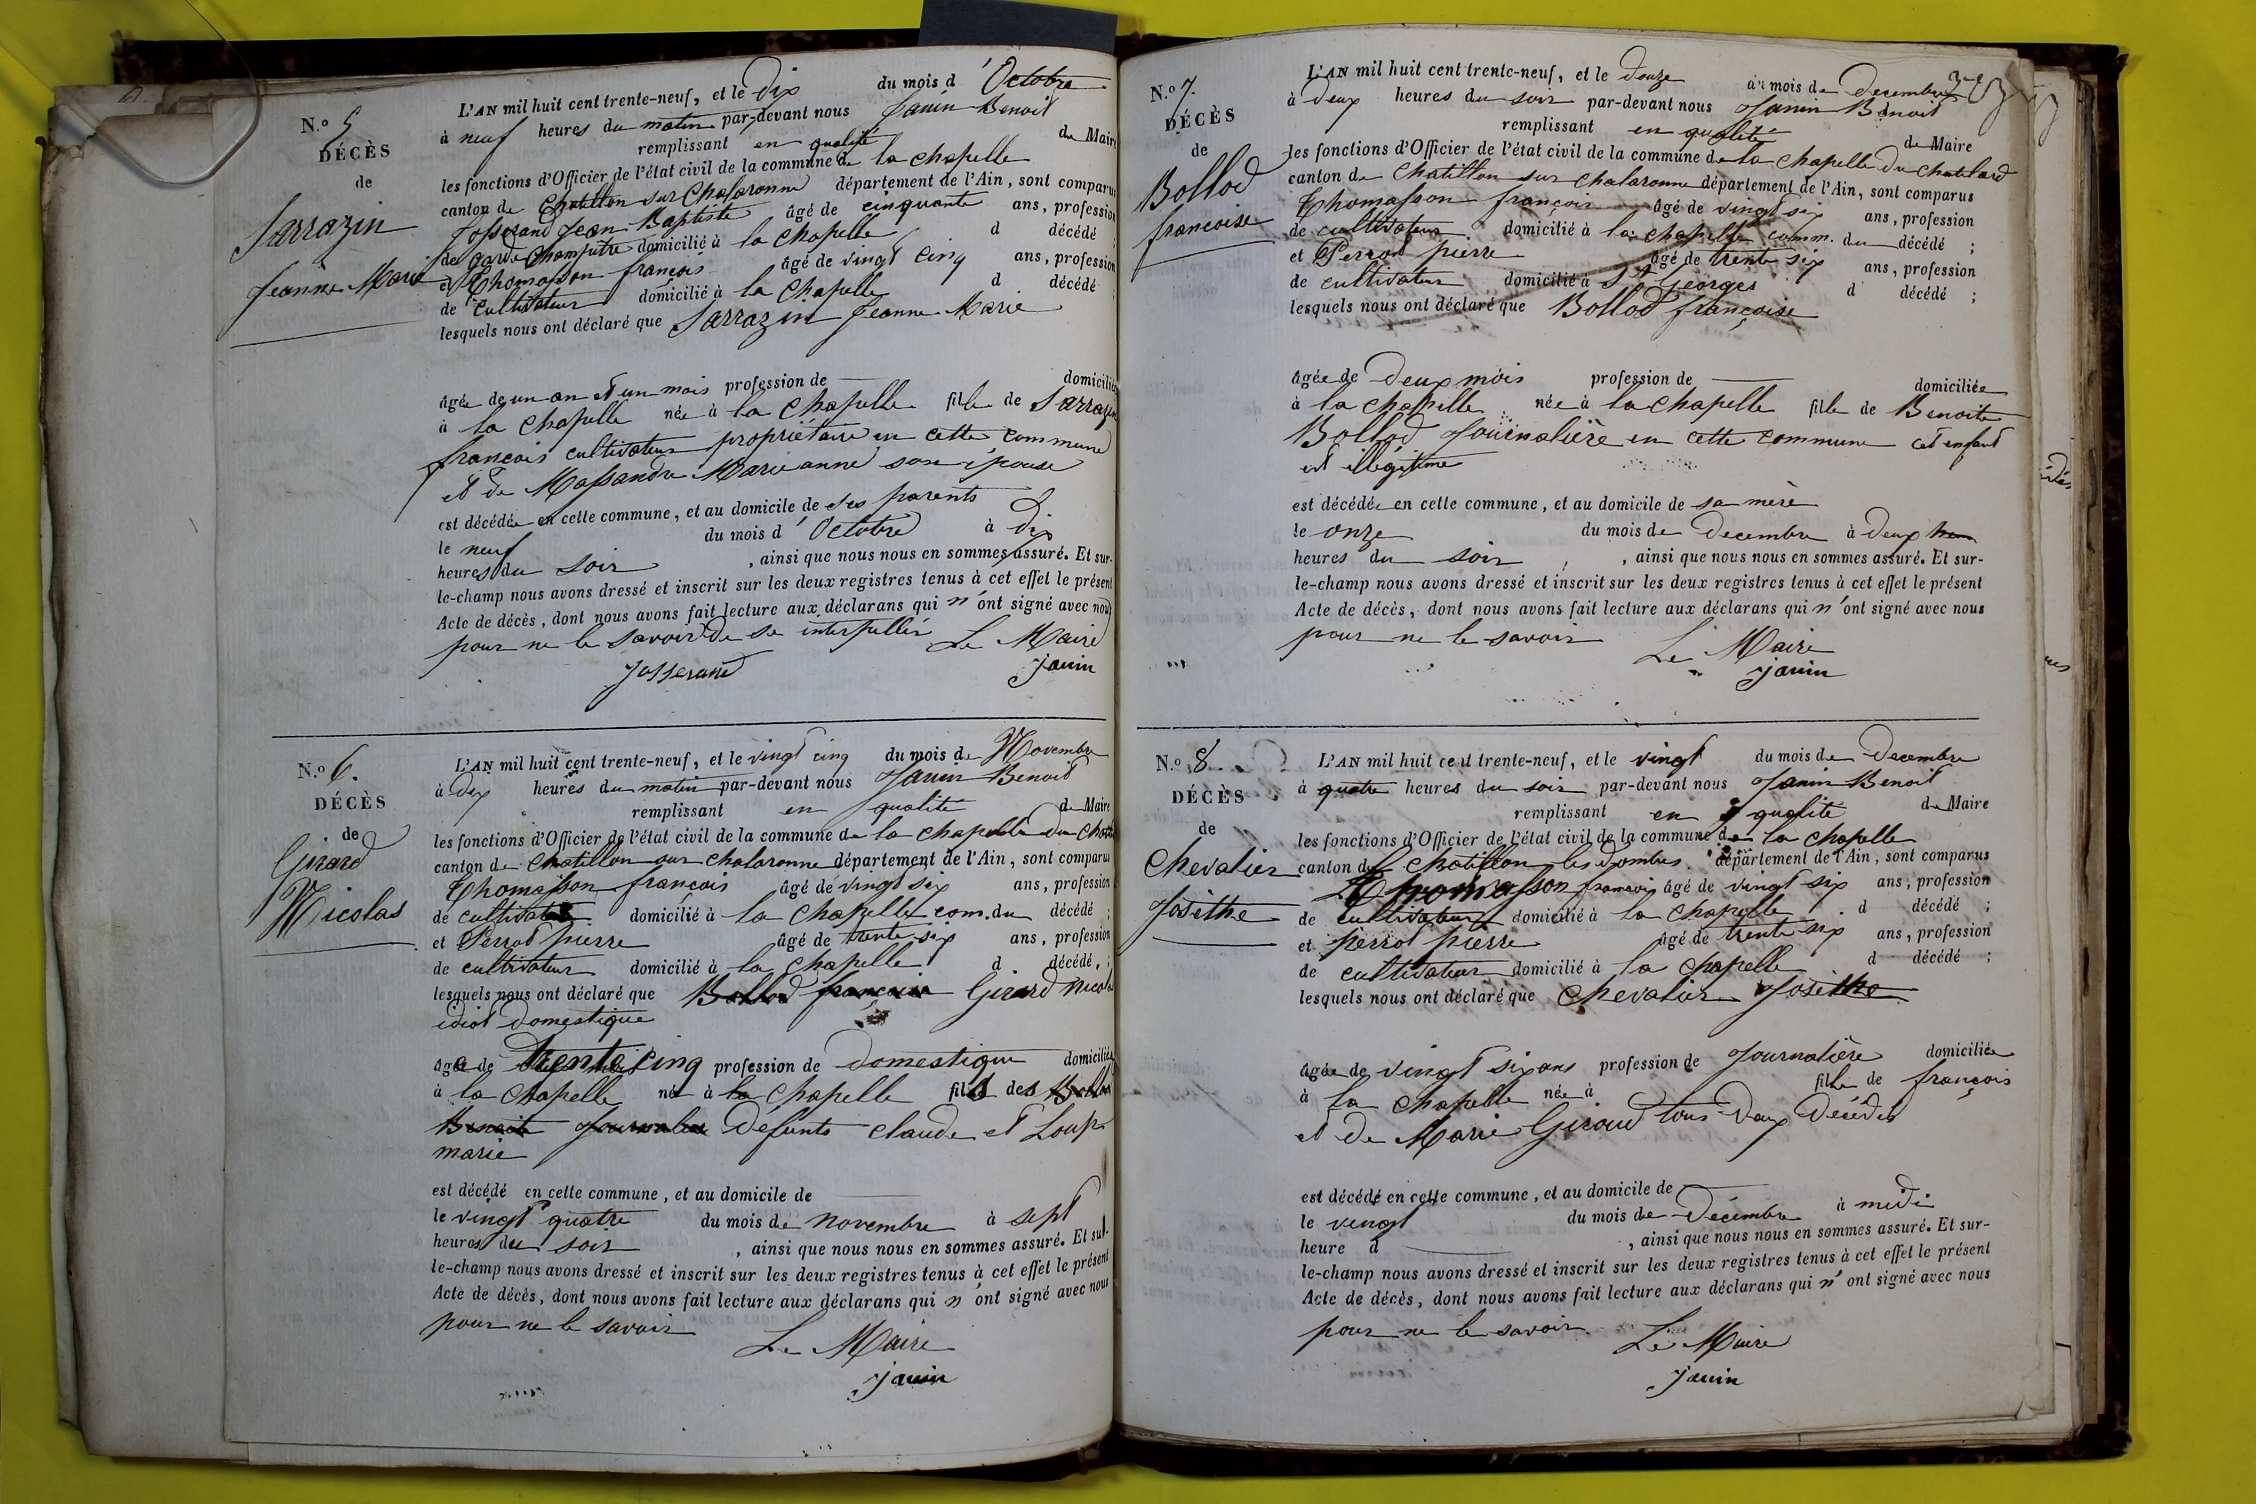 N.º 5
DÉCÈS
de
Sarrazin
Jeanne Marie
L'AN mil huit cent trente-neuf, et le dix du mois d'Octobre
à neuf heures du matin par-devant nous Janin Benoit
remplissant en qualité de Maire
les fonctions d'Officier de l'état civil de la commune de la chapelle
canton de Chatillon sur Chalaronne département de l'Ain, sont comparus
Josserand Jean Baptiste âgé de cinquante ans, profession
de garde champetre domicilié à la chapelle d décédé ;
et Thomasson françois âgé de vingt cinq ans, profession
de cultivateur domicilié à la Chapelle d décédé ;
lesquels nous ont déclaré que Sarrazin Jeanne Marie
âgée de un an et un mois profession de domiciliée
à la chapelle née à la chapelle fille de Sarrazin
françois cultivateur propriétaire en cette commune
et de Massandre Marie anne son épouse
est décédée en cette commune, et au domicile de ses parents
le neuf du mois d'Octobre à Dix
heures du soir , ainsi que nous nous en sommes assuré. Et sur-
le-champ nous avons dressé et inscrit sur les deux registres tenus à cet effet le présent
Acte de décès, dont nous avons fait lecture aux déclarans qui n'ont signé avec nous
pour ne le savoir de se interpellés Le Maire
Josserand Janin
N.º 6.
DÉCÈS
de
Girard
Nicolas
L'AN mil huit cent trente-neuf, et le vingt cinq du mois de Novembre
à dix heures du matin par-devant nous Janin Benoit
remplissant en qualité de Maire
les fonctions d'Officier de l'état civil de la commune de la chapelle du Chat
canton de Chatillon sur chalaronne département de l'Ain, sont comparus
Thomasson françois âgé de vingt six ans, profession
de cultivateur domicilié à la chapelle com. du décédé ;
et Perrod pierre âgé de trente six ans, profession
de cultivateur domicilié à la chapelle d décédé, ;
lesquels nous ont déclaré que Bollod françoise Girard Nicolas
idiot Domestique
âgé de trente cinq profession de domestique domicilié
à la chapelle né à la chapelle fils des Bollod
Benoite Journaliere Défunts claude et Loup
marie
est décédé en cette commune, et au domicile de
le vingt quatre du mois de novembre à sept
heures du soir , ainsi que nous nous en sommes assuré. Et sur-
le-champ nous avons dressé et inscrit sur les deux registres tenus à cet effet le présent
Acte de décès, dont nous avons fait lecture aux déclarans qui n'ont signé avec nous
pour ne le savoir Le Maire
Janin
N.º 7.
DÉCÈS
de
Bollod
francoise
L'AN mil huit cent trente-neuf, et le douze du mois de Decembre
à deux heures du soir par-devant nous Janin Benoit
remplissant en qualité de Maire
les fonctions d'Officier de l'état civil de la commune de la chapelle du Chatelard
canton de Chatillon sur chalaronne département de l'Ain, sont comparus
Thomasson françois âgé de vingt six ans, profession
de cultivateur domicilié à la chapelle comm. du décédé ;
et Perrod pierre âgé de trente six ans, profession
de cultivateur domicilié à St Georges d décédé ;
lesquels nous ont déclaré que Bollod françoise
âgée de Deux mois profession de domiciliée
à la chapelle née à la chapelle fille de Benoite
Bollod Journalière en cette commune cet enfant
est illégitime
est décédée en cette commune, et au domicile de sa mère
le onze du mois de Decembre à deux
heures du soir , ainsi que nous nous en sommes assuré. Et sur-
le-champ nous avons dressé et inscrit sur les deux registres tenus à cet effet le présent
Acte de décès, dont nous avons fait lecture aux déclarans qui n'ont signé avec nous
pour ne le savoir
Le Maire
Janin
N.º 8.
DÉCÈS
de
Chevalier
Josèthe
L'AN mil huit cent trente-neuf, et le vingt du mois de Decembre
à quatre heures du soir par-devant nous Janin Benoit
remplissant en qualité de Maire
les fonctions d'Officier de l'état civil de la commune de la chapelle
canton de Chatillon les Dombes département de l'Ain, sont comparus
Thomasson francois âgé de vingt six ans, profession
de cultivateur domicilié à la chapelle d décédé ;
et perrod pierre âgé de trente six ans, profession
de cultivateur domicilié à la chapelle d décédé ;
lesquels nous ont déclaré que Chevalier Josèthe
âgée de vingt six ans profession de Journalière domiciliée
à la chapelle née à fille de françois
et de Marie Giraud tous deux décédés
est décédé en cette commune, et au domicile de
le vingt du mois de Décembre à midi
heure d , ainsi que nous nous en sommes assuré. Et sur-
le-champ nous avons dressé et inscrit sur les deux registres tenus à cet effet le présent
Acte de décès, dont nous avons fait lecture aux déclarans qui n'ont signé avec nous
pour ne le savoir. Le Maire
Janin